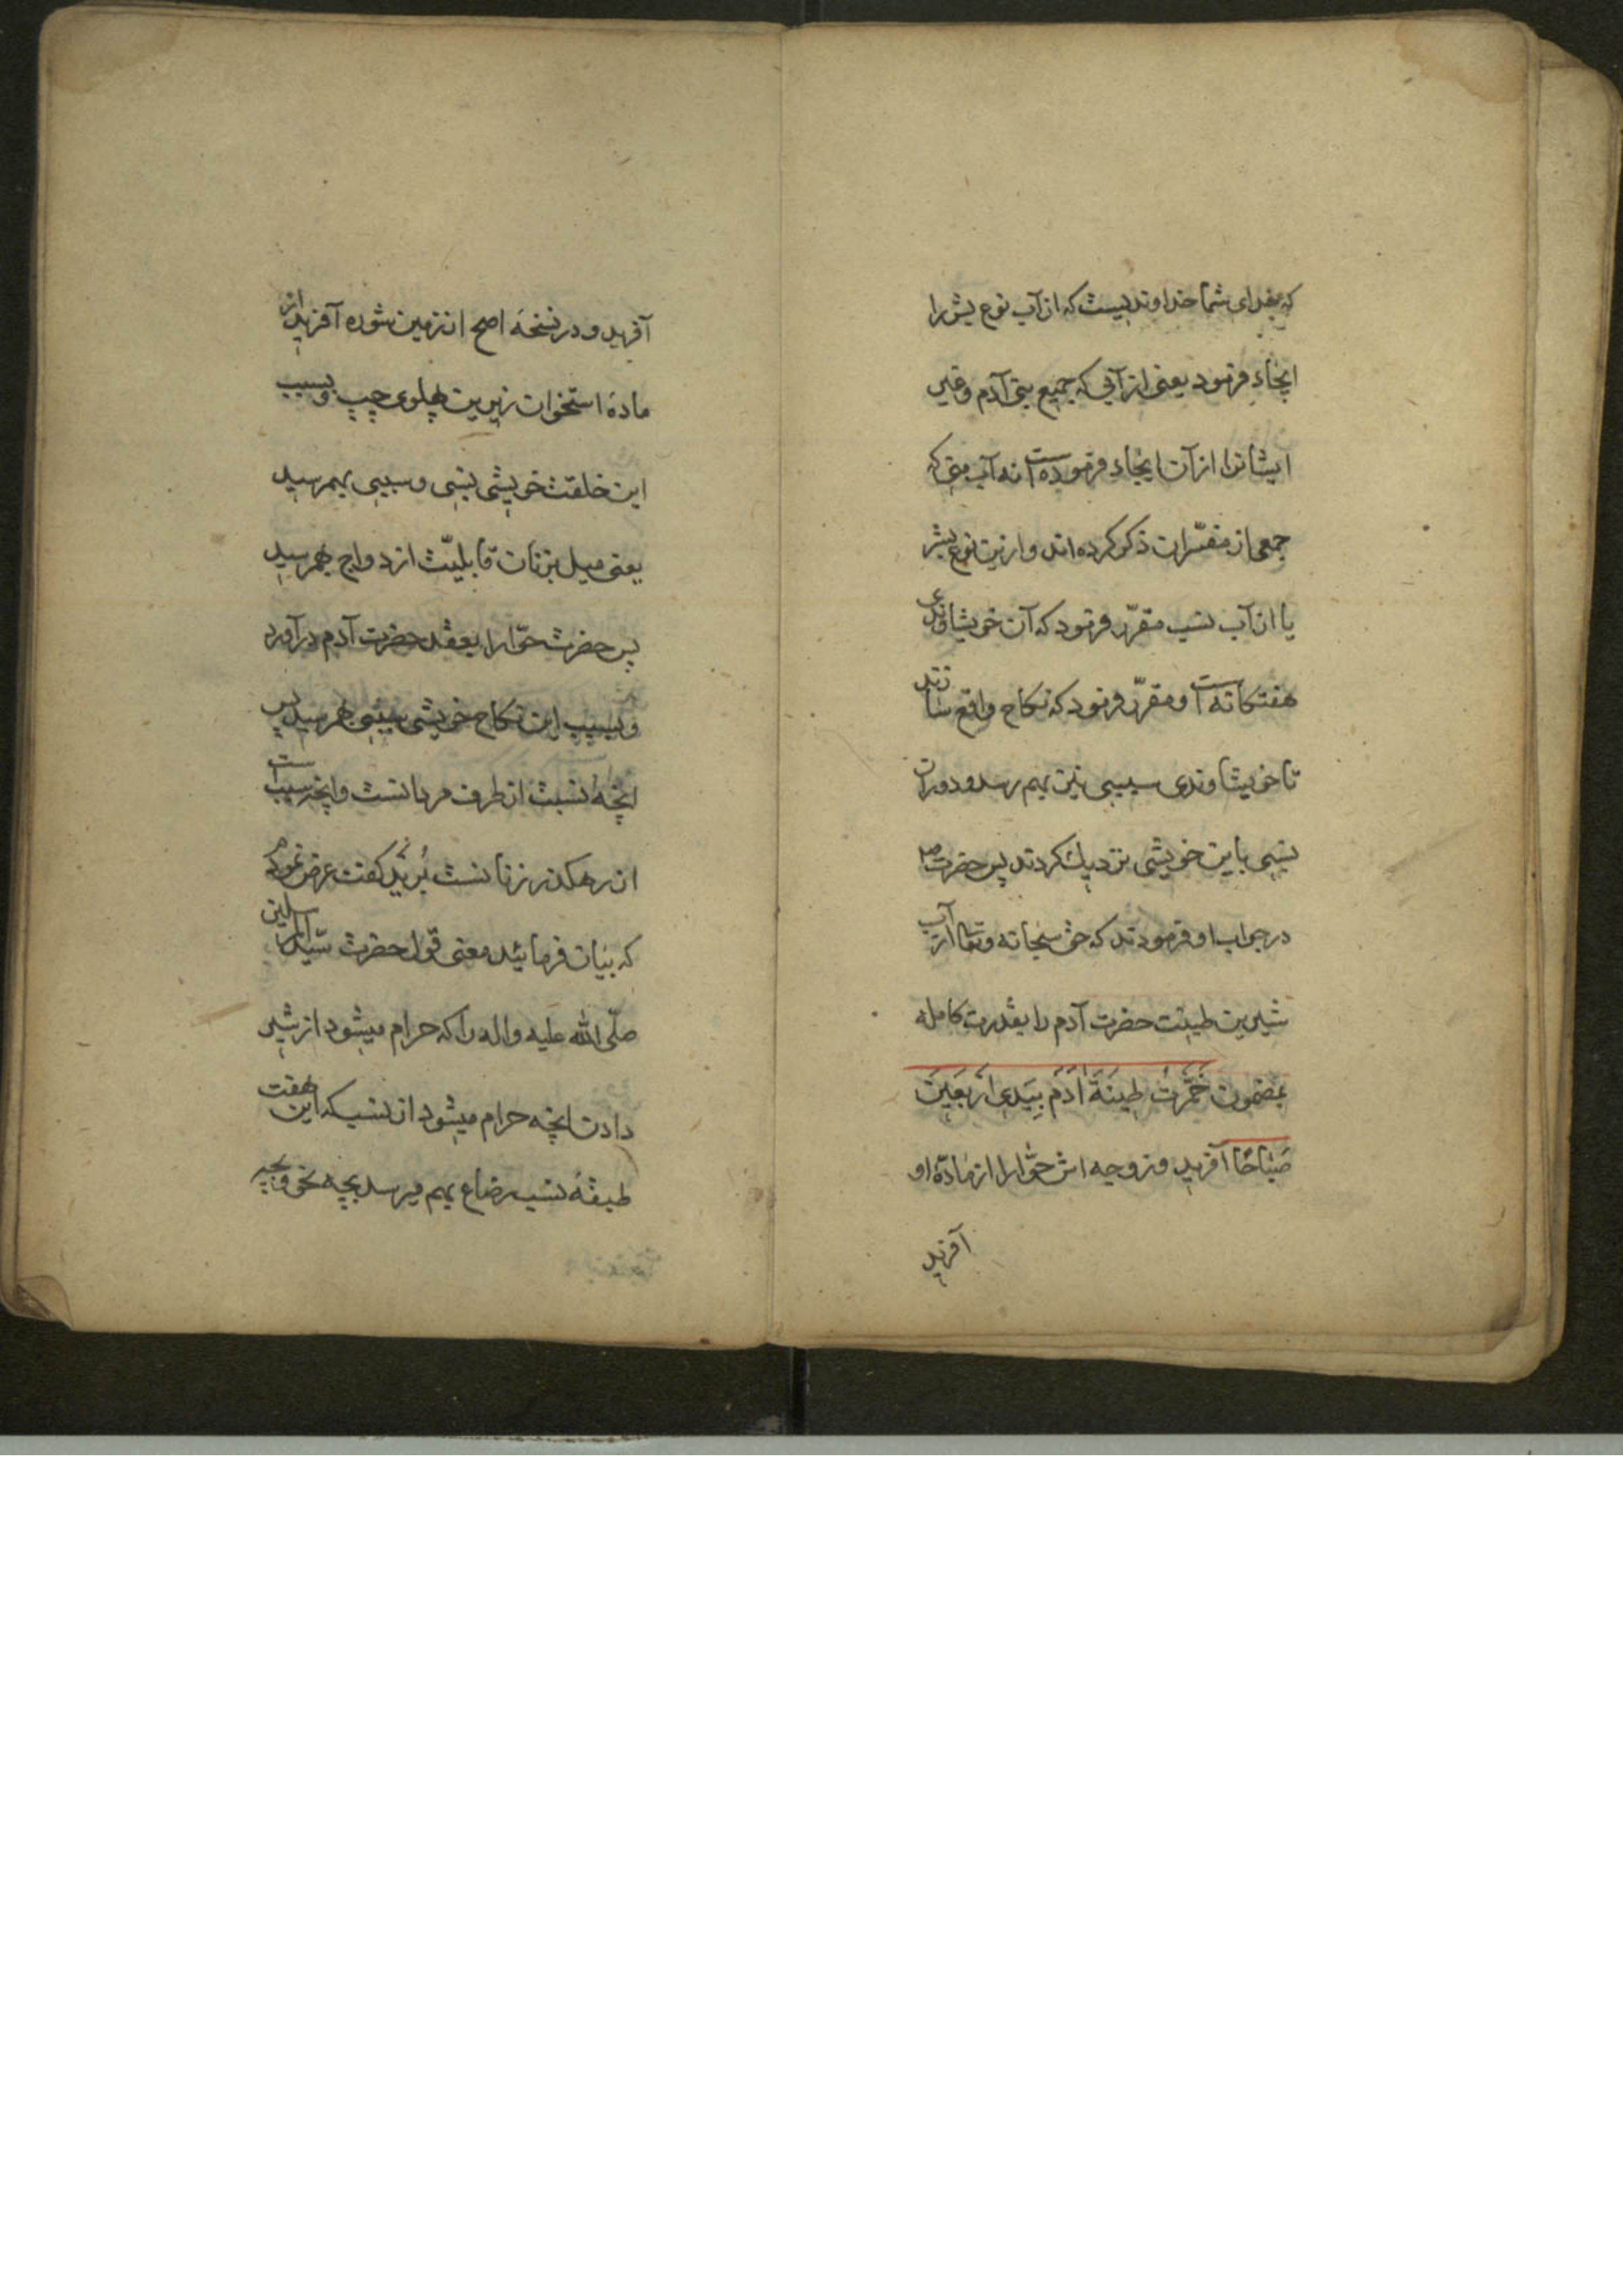 که خدای شما خداوندیست که از آب نوع بشر را
ایجاد فرمود یعنی از آبی که جمیع بنی آدم وغیر
ایشانرا از آن ایجاد فرموده است نه آب منی که
جمعی از مفسّران ذکر کرده اند و ازین نوع بشر
یا از آب نسب مقرّر فرمود که آن خویشاوندی
هفتکانه است و مقرّر فرمود که نکاح واقع سازند
تا خویشاوندی سببی نیز بهم رسد و دوران
نسبی باین خویشی نزدیک کردند پس حضرت
در جواب او فرمودند که حق سبحانه وتعالی از آب
شیرین طینت حضرت آدم را بقدرت کامله
بمضمون خَمَّرْتُ طِینَةَ اٰدَمَ بِیَدِی اَرْبَعِینَ
صَبٰاحًا آفرید و زوجه اش حوّا را از مادّه او
آفرید
آفرید و در نسخه اصح از زمین شوره آفرید از
ماده استخوان زیرین پهلوی چپ وبسبب
این خلقت خویشی نسبی و سببی بهمرسید
یعنی میل بزنان قابلیّت ازدواج بهمرسید
پس حضرت حوّا را بعقد حضرت آدم درآورد
وبسبب این نکاح خویشی سببی بهمرسید پس
آنچه نسبت از طرف مردانست وآنچه سبب است
از رهکذر زنانست بُرَیْد کفت عرض نمودم
که بیان فرمائید معنی قول حضرت سیّد المرسلین
صلّی الله علیه واله را که حرام میشود از شیر
دادن آنچه حرام میشود از نسب که این هفت
طبقهٔ نسب رضاع بهم میرسد بچه نحو